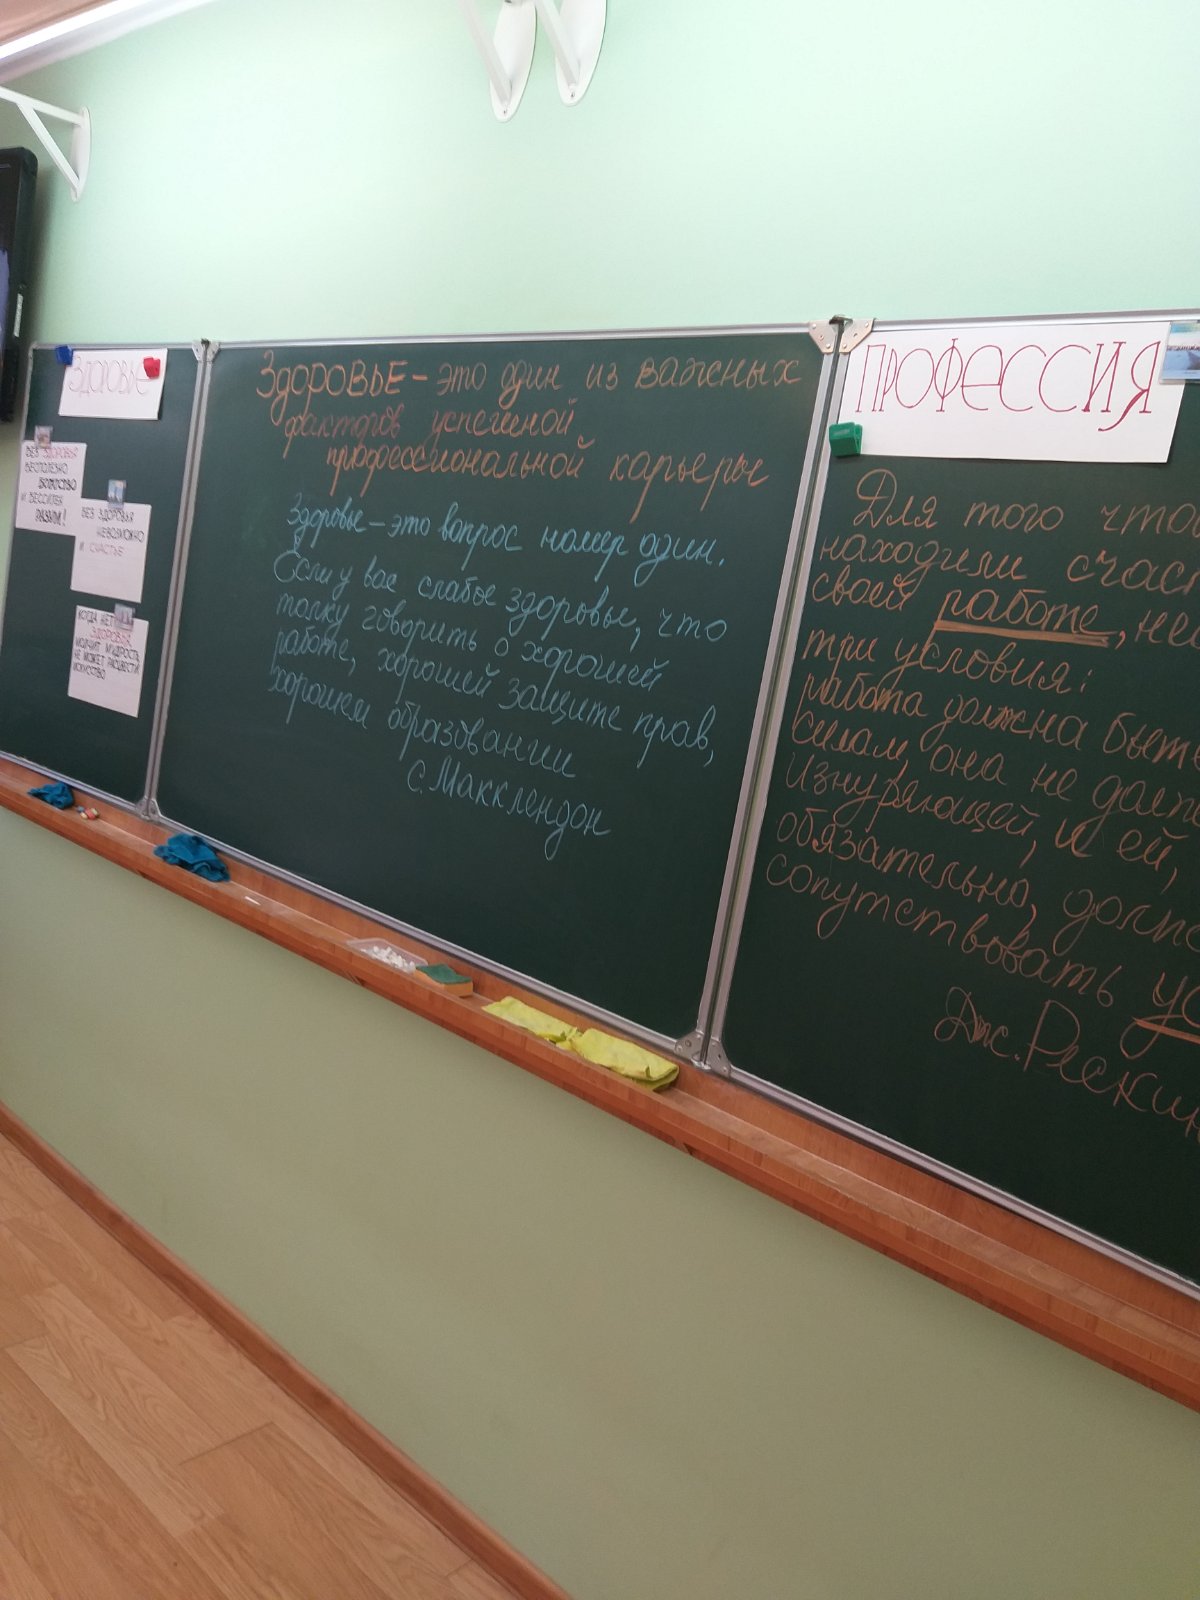 ЗДОРОВЬЕ
БЕЗ ЗДОРОВЬЯ
БЕСПОЛЕЗНО
БОГАТСТВО
И БЕССИЛЕН
РАЗУМ!
БЕЗ ЗДОРОВЬЯ
НЕВОЗМОЖНО
И СЧАСТЬЕ
КОГДА НЕТ
ЗДОРОВЬЯ,
МОЛЧИТ МУДРОСТЬ,
НЕ МОЖЕТ РАСЦВЕСТИ
ИСКУССТВО
ЗДОРОВЬЕ – это один из важных
факторов успешной
профессиональной карьеры
Здоровье – это вопрос номер один.
Если у вас слабое здоровье, что
толку говорить о хорошей
работе, хорошей защите прав,
хорошем образовании
С. Макклендон
ПРОФЕССИЯ
Для того что
находили счас
своей работе, не
три условия:
работа должна быть
силам, она не
изнуряющей, и ей,
обязательно,
сопутствовать ус
Дж. Рескин